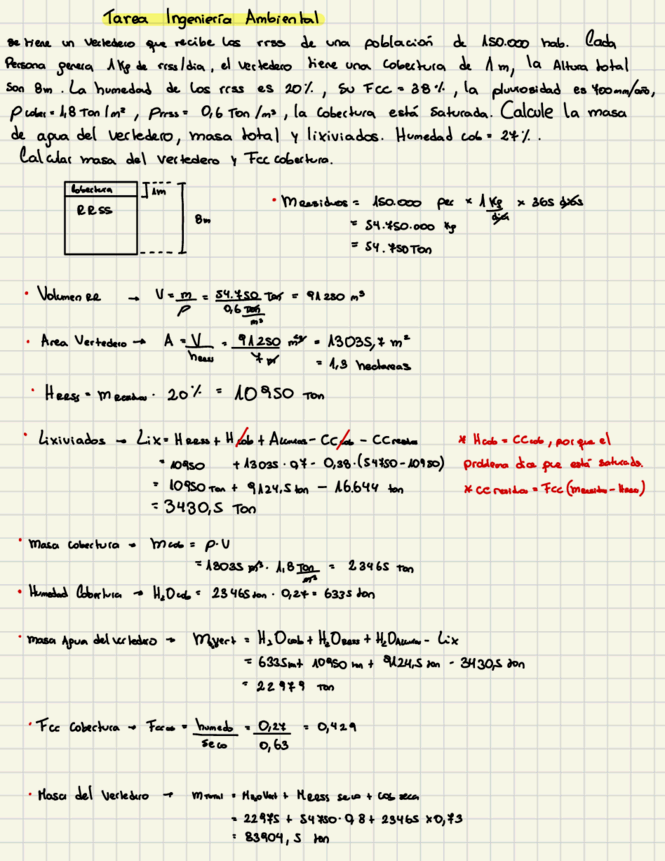 Tarea Ingeniería Ambiental
se tiene un vertedero que recibe los rrss de una población de 150.000 hab. Cada
Persona genera 1 Kg de rrss/dia, el vertedero tiene una cobertura de 1 m, la Altura total
son 8m. La humedad de los rrss es 20%, su Fcc = 38%, la pluviosidad es 700mm/año,
ρ cober = 1,8 Ton/m³, ρrrss = 0,6 Ton/m³, la cobertura está saturada. Calcule la masa
de agua del vertedero, masa total y lixiviados. Humedad cob = 27%.
Calcular masa del vertedero y Fcc cobertura.
Cobertura
1m
RRSS
8m
• Mresiduos = 150.000 per × 1 Kg/dia × 365 días
= 54.750.000 Kg
= 54.750 Ton
• Volumen RR → V = m/ρ = 54.750 Ton / 0,6 Ton/m³ = 91250 m³
• Area Vertedero → A = V/hrrss = 91250 m³ / 7 m = 13035,7 m²
= 1,3 hectareas
• Hrrss = m residuos · 20% = 10950 Ton
• Lixiviados → Lix = Hrrss + Hcob + Alluvias - CCcob - CCresiduo
= 10950 + 13035 · 0,7 - 0,38 · (54750 - 10950)
= 10950 Ton + 9124,5 ton - 16.644 ton
= 3430,5 Ton
* Hcob = CCcob, porque el
problema dice que está saturada.
* CC residuo = Fcc (mresiduo - Hrrss)
• Masa cobertura → mcob = ρ·V
= 13035 m³ · 1,8 Ton/m³ = 23465 Ton
• Humedad Cobertura → H₂Ocob = 23465 ton · 0,27 = 6335 ton
• masa Agua del vertedero → Mvert = H₂Ocob + H₂Orrss + H₂OAlluvias - Lix
= 6335 ton + 10950 ton + 9124,5 ton - 3430,5 ton
= 22979 Ton
• Fcc Cobertura → Fcccob = humedo/seco = 0,27/0,63 = 0,429
• Masa del vertedero → mtotal = MH₂OVert + MRRSS seco + cob seca
= 22975 + 54750 · 0,8 + 23465 × 0,73
= 83904,5 ton